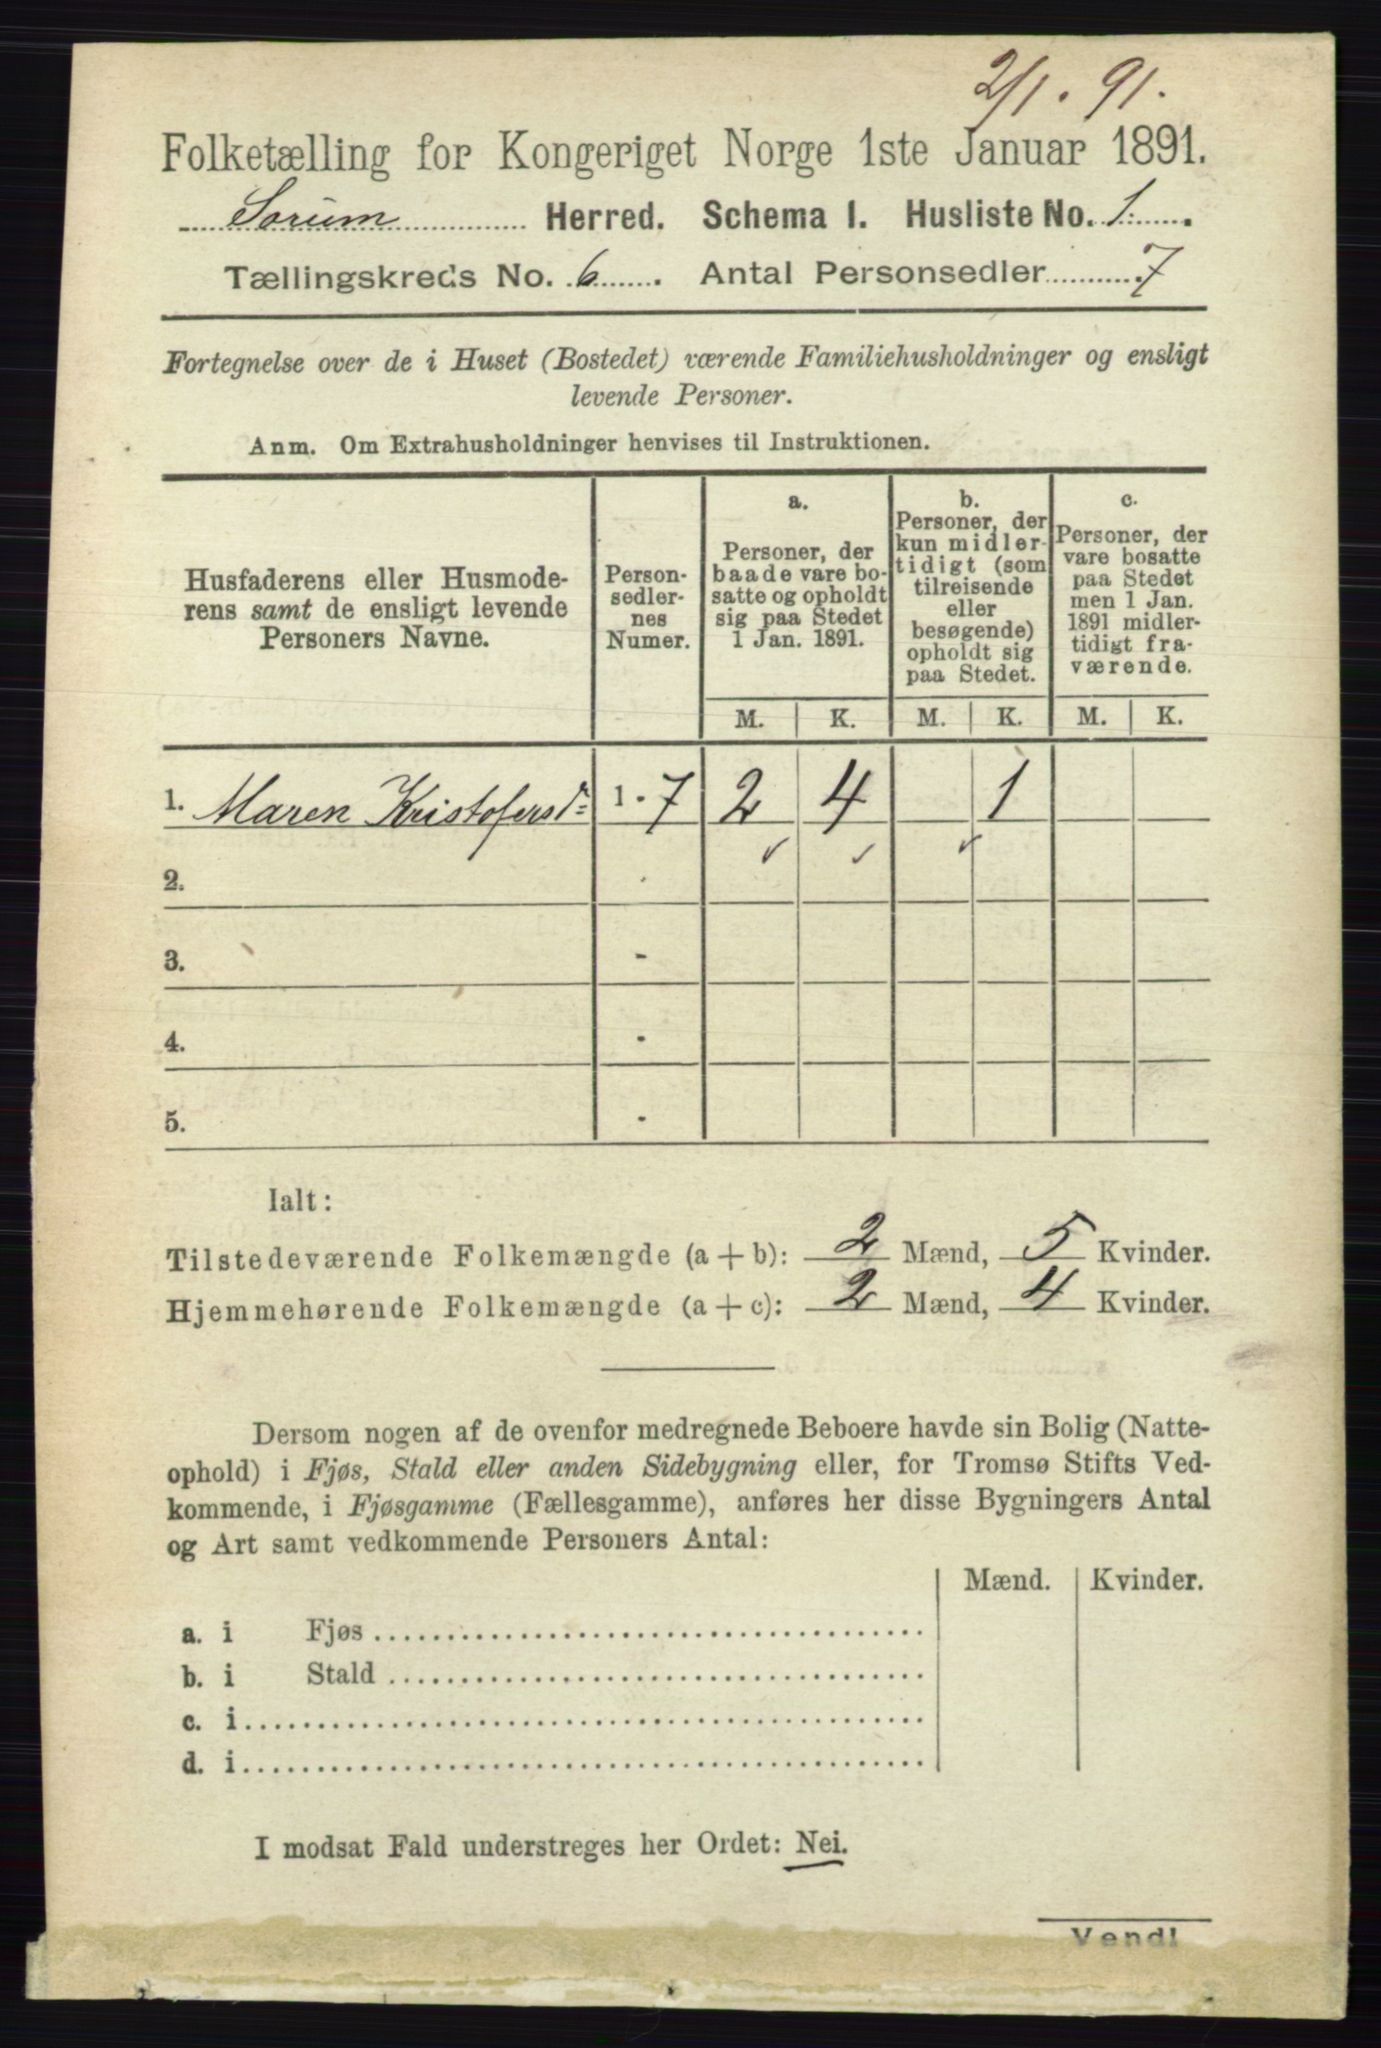 2/1. 91.
Folketælling for Kongeriget Norge 1ste Januar 1891.
Sorum Herred. Schema I. Husliste No. 1.
Tællingskreds No. 6. Antal Personsedler 7
Fortegnelse over de i Huset (Bostedet) værende Familiehusholdninger og ensligt
levende Personer.
Anm. Om Extrahusholdninger henvises til Instruktionen.
Husfaderens eller Husmode-
rens samt de ensligt levende
Personers Navne.
Person-
sedler-
nes
Numer.
a.
Personer, der
baade vare bo-
satte og opholdt
sig paa Stedet
1 Jan. 1891.
b.
Personer, der
kun midler-
tidigt (som
tilreisende
eller
besøgende)
opholdt sig
paa Stedet.
c.
Personer, der
vare bosatte
paa Stedet
men 1 Jan.
1891 midler-
tidigt fra-
værende.
M. K. M. K. M. K.
1. Maren Kristofersd= 1 - 7 2 4 1
2. -
3. -
4. -
5. -
Ialt:
Tilstedeværende Folkemængde (a + b): 2 Mænd, 5 Kvinder.
Hjemmehørende Folkemængde (a + c): 2 Mænd, 4 Kvinder.
Dersom nogen af de ovenfor medregnede Beboere havde sin Bolig (Natte-
ophold) i Fjøs, Stald eller anden Sidebygning eller, for Tromsø Stifts Ved-
kommende, i Fjøsgamme (Fællesgamme), anføres her disse Bygningers Antal
og Art samt vedkommende Personers Antal:
Mænd. Kvinder.
a. i Fjøs
b. i Stald
c. i
d. i
I modsat Fald understreges her Ordet: Nei.
Vend!